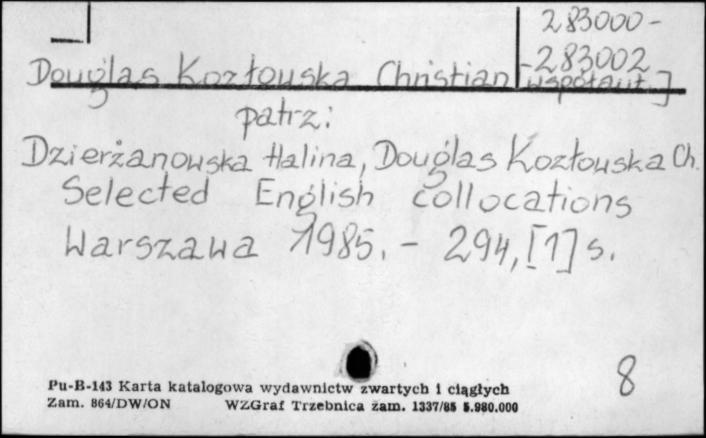 283000-
-283002
Douglas Kozłowska Christian [współaut.]
patrz:
Dzierżanowska Halina, Douglas Kozłowska Ch.
Selected English collocations
Warszawa 1985. - 294, [1] s.
8
Pu-B-143 Karta katalogowa wydawnictw zwartych i ciągłych
Zam. 864/DW/ON WZGraf Trzebnica zam. 1337/85 5.980.000